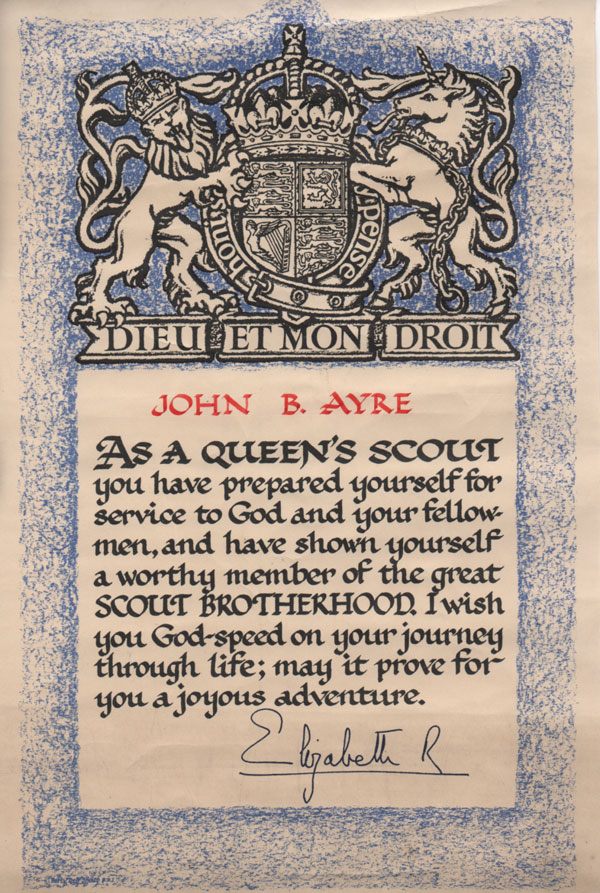 honi
pense
DIEU ET MON DROIT
JOHN B. AYRE
AS A QUEEN'S SCOUT
you have prepared yourself for
service to God and your fellow-
men, and have shown yourself
a worthy member of the great
SCOUT BROTHERHOOD. I wish
you God-speed on your journey
through life; may it prove for
you a joyous adventure.
Elizabeth R